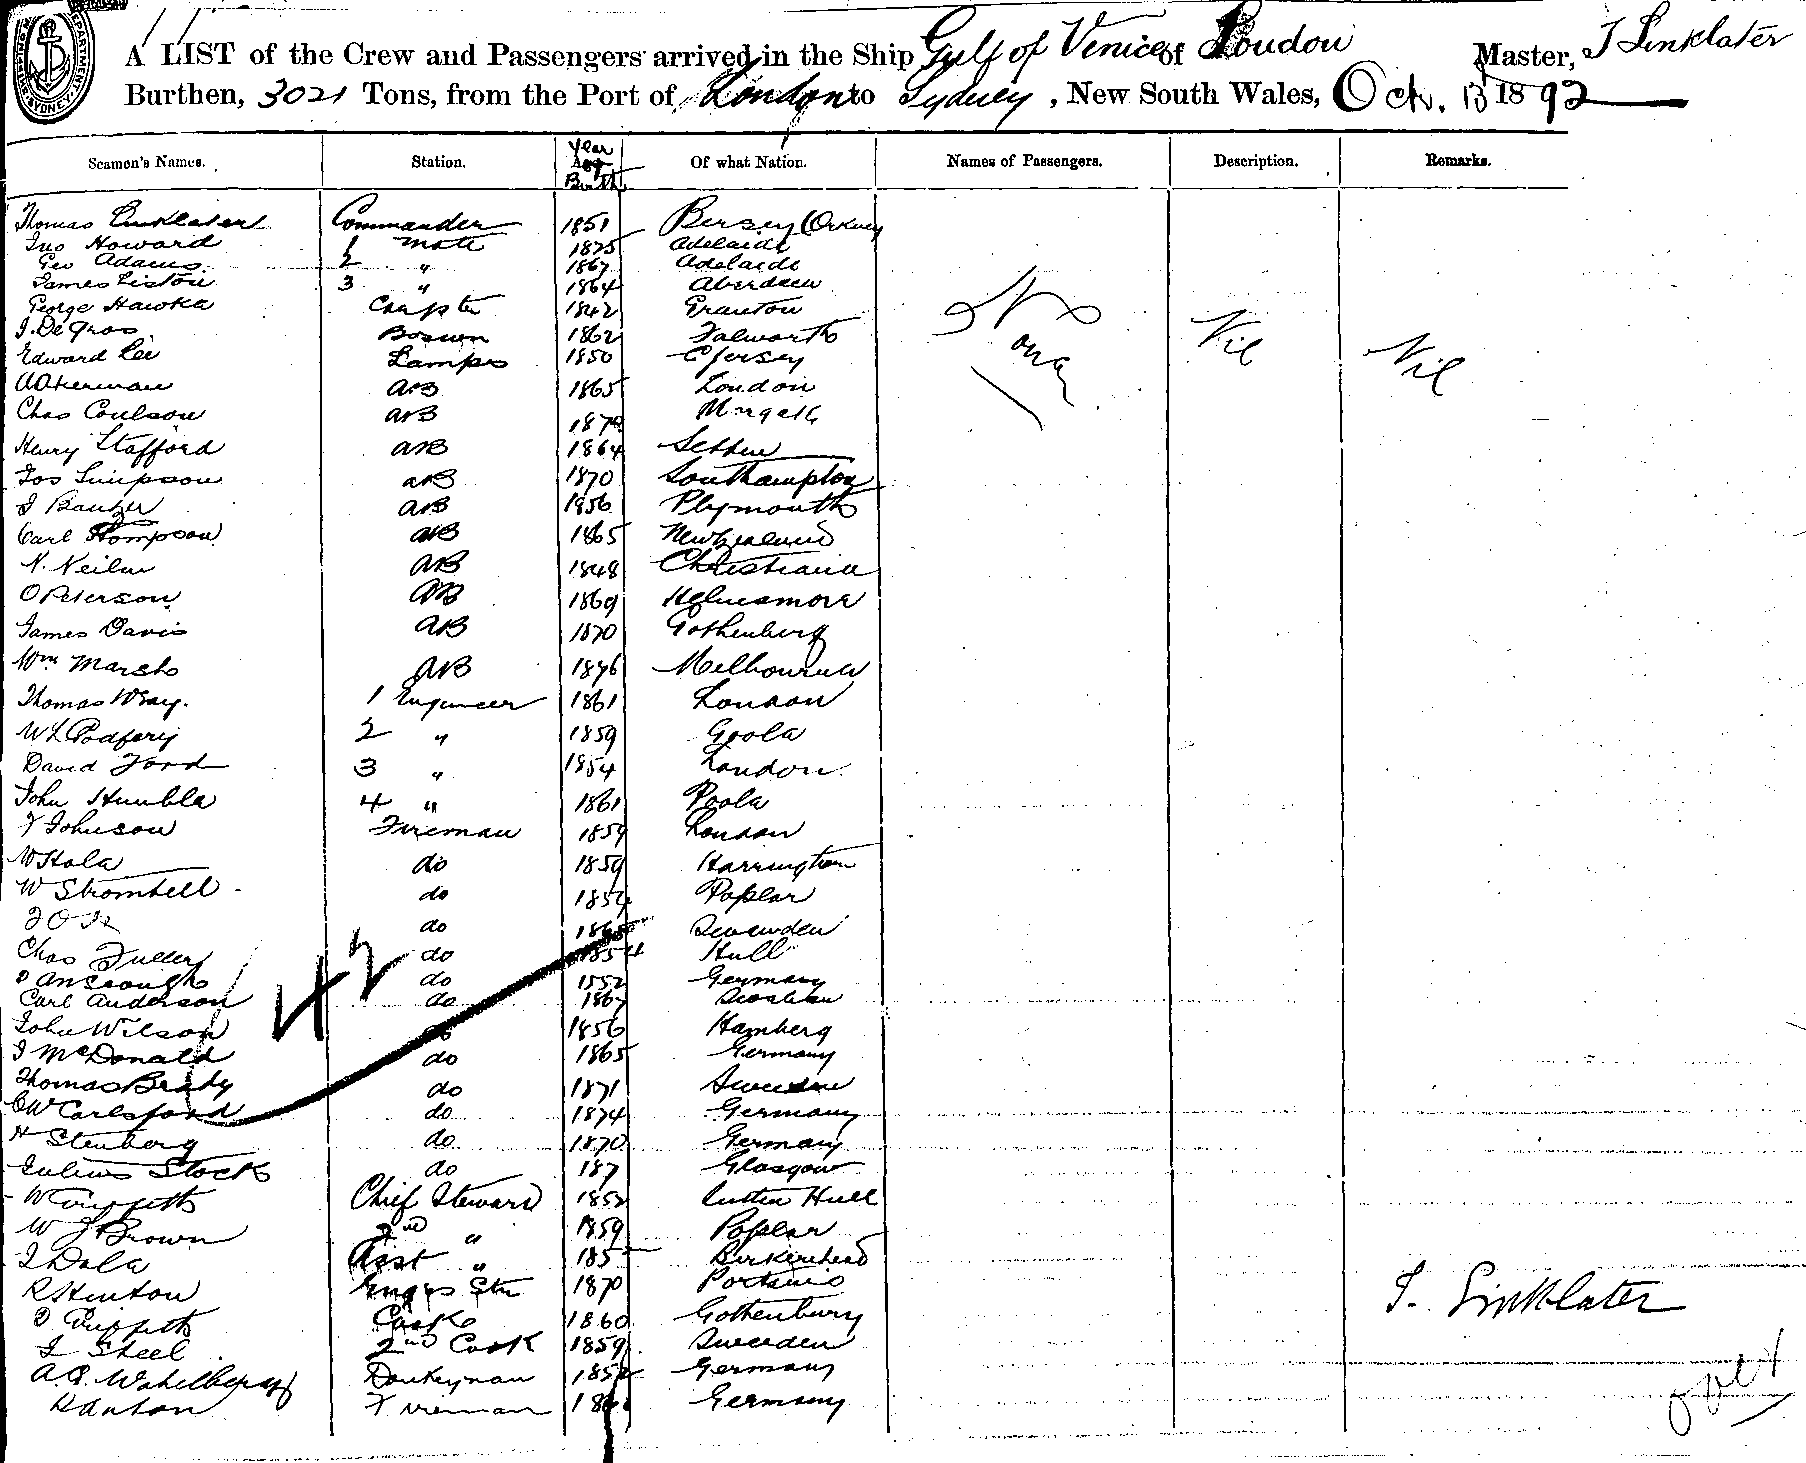 A LIST of the Crew and Passengers arrived in the Ship Gulf of Venice of London Master, J Linklater
Burthen, 3021 Tons, from the Port of London to Sydney, New South Wales, Oct. 13 1892
Seamen's Names. Station. Year Age Birth Of what Nation. Names of Passengers. Description. Remarks.
Thomas Linklater Commander 1851 Bersey (Orkney
Jno Howard 1 Mate 1875 Adelaide
Geo Adams 2 " 1867 Adelaide
James Liston 3 " 1864 Aberdeen
George Hawka Carpter 1842 Granton
J. De Gros Bosewn 1862 Falworth
Edward Lee Lamps 1850 Jersey
None Nil Nil
A Akerman AB 1865 London
Chas Coulson AB 187 Margate
Henry Stafford AB 1864
Jos Simpson AB 1870 Southampton
J AB 1856 Plymouth
Carl Thompson AB 1865 New Zealand
N. Neilm AB 1848 Christiania
O Peterson AB 1869
James Davis AB 1870 Gothenberg
Wm Marsh AB 1876 Melbourne
Thomas Wray. 1 Engineer 1861 London
W L Podfery 2 " 1859 Goola
David Ford 3 " 1854 London
John Humbla 4 " 1861 Poola
F Johnson Fireman 1859 London
W Hola do 1859 Harrington
W Stromhell do 185 Poplar
do Sweeden
Chas Fuller do 1854 Hull
do Germany
Carl Anderson do 1867
42
John Wilson do 1856 Hamberg
J McDonald do 1865 Germany
Thomas Brady do 1871
C W Carlsford do 1874 Germany
H Stenberg do 1870 Germany
Julius Stock do 187 Glasgow
W Griffeths Chief Steward 1852 Hull
W J Brown 2nd " 1859 Poplar
J Dola Asst " 185 Birkenhead
R Hinton Engrs Stw 1870
D Griffeths Cook 1860 Gothenburg
J Steel 2nd Cook 1859 Sweeden
A. C. Wahelberg Donkeyman 1852 Germany
Danton Fireman 186 Germany
J. Linklater